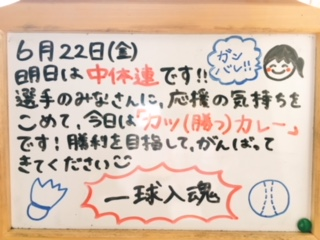 6月22日(金)
明日は中体連です!!
選手のみなさんに、応援の気持ちを
こめて、今日は「カツ(勝つ)カレー」
です!勝利を目指して、がんばって
きてください
ガン
バレ!!
一球入魂